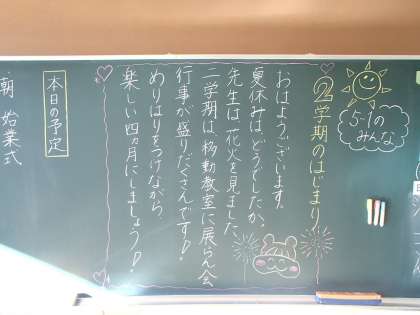 5-1の
みんな
②学期のはじまり
おはようございます。
夏休みは、どうでしたか。
先生は、花火を見ました。
二学期は、移動教室に展らん会
行事が盛りだくさんです!
めりはりをつけながら、
楽しい四ヵ月にしましょう!
本日の予定
朝 始業式